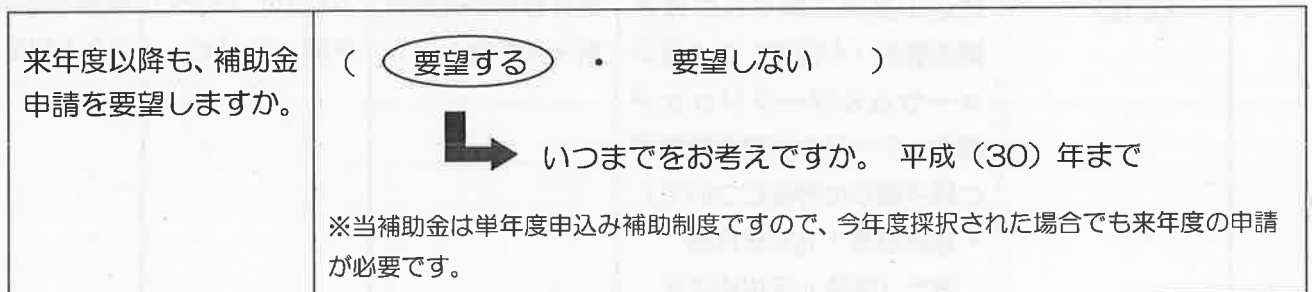 来年度以降も、補助金
申請を要望しますか。
( 要望する ・ 要望しない )
いつまでをお考えですか。 平成（30）年まで
※当補助金は単年度申込み補助制度ですので、今年度採択された場合でも来年度の申請
が必要です。